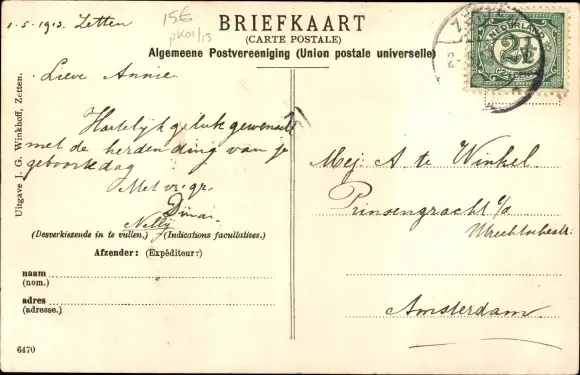 1-5-1913. Zetten
15E
BRIEFKAART
(CARTE POSTALE)
Algemeene Postvereeniging (Union postale universelle)
NEDERLAND
2½
CENT
Uitgave J. G. Winkhoff, Zetten.
Lieve Annie.
Hartelijk geluk gewenscht
met de herdenking van je
geboortedag
Met vr. gr.
Dina.
Nellij
(Desverkiezende in te vullen.) (Indications facultatives.)
Afzender: (Expéditeur:)
naam
(nom.)
adres
(adresse.)
6470
Mej. A te Winkel.
Prinsengracht b/d
Utrechtschestr.
Amsterdam.